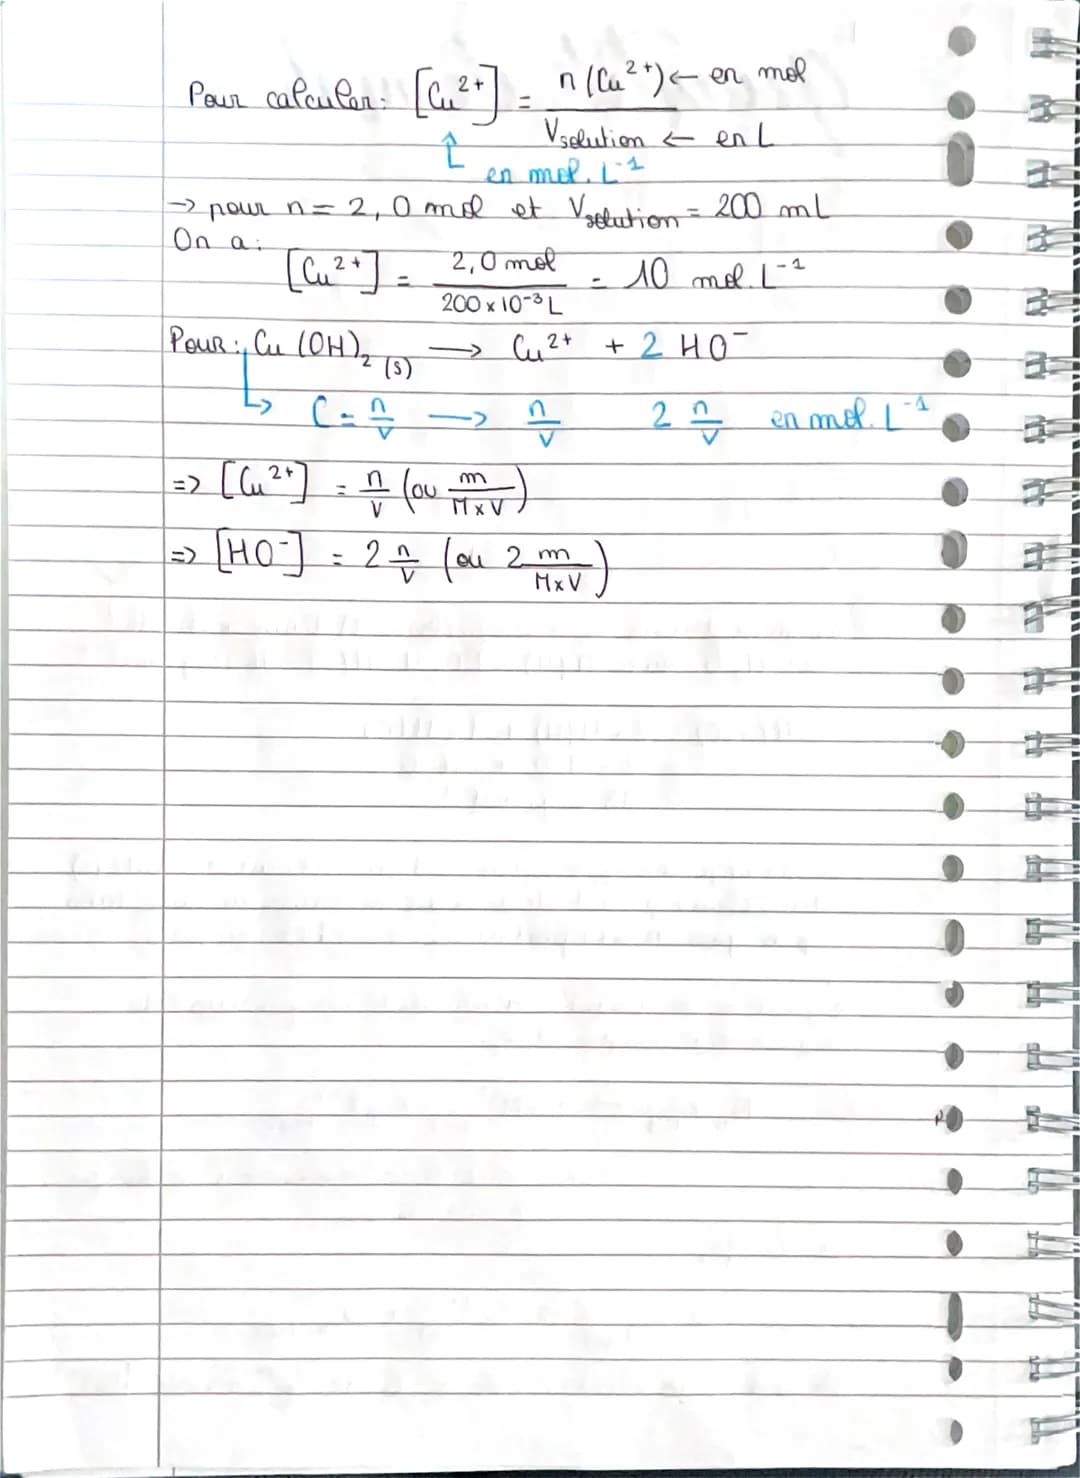 Pour calculer: [Cu²⁺] = n(Cu²⁺) ← en mol / Vsolution ← en L
↑ en mol.L⁻¹
→ pour n = 2,0 mol et Vsolution = 200 mL
On a:
[Cu²⁺] = 2,0 mol / 200 x 10⁻³ L = 10 mol.L⁻¹
Pour: Cu(OH)₂ (s) → Cu²⁺ + 2 HO⁻
↳ C = n/V → n/V 2 n/V en mol.L⁻¹
=> [Cu²⁺] = n/V (ou m/MxV)
=> [HO⁻] = 2 n/V (ou 2 m/MxV)